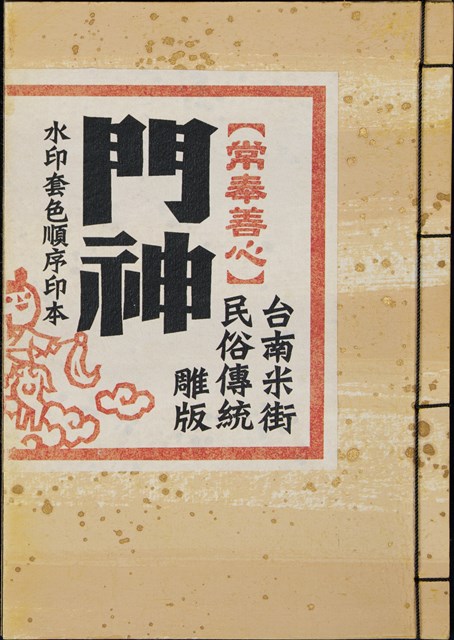 【常奉善心】
台南米街
民俗傳統
雕版
門神
水印套色順序印本